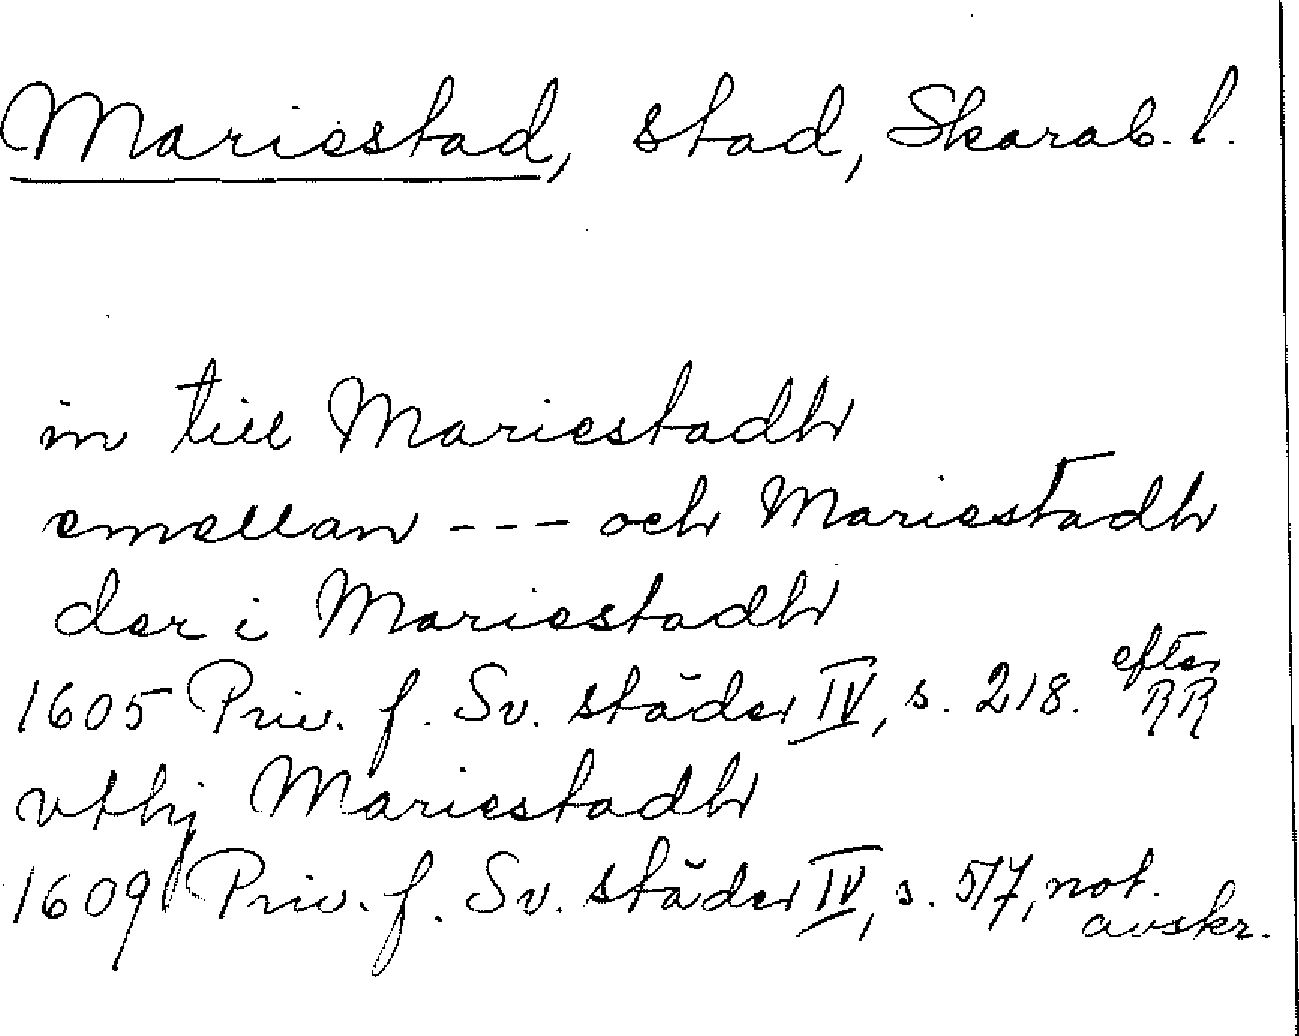 Mariestad, stad, Skarab. l.
in till Mariestadh
emellan --- och Mariestadh
der i Mariestadh
1605 Priv. f. Sv. städer IV, s. 218. efter RR
vthj Mariestadh
1609 Priv. f. Sv. städer IV, s. 517, not. avskr.